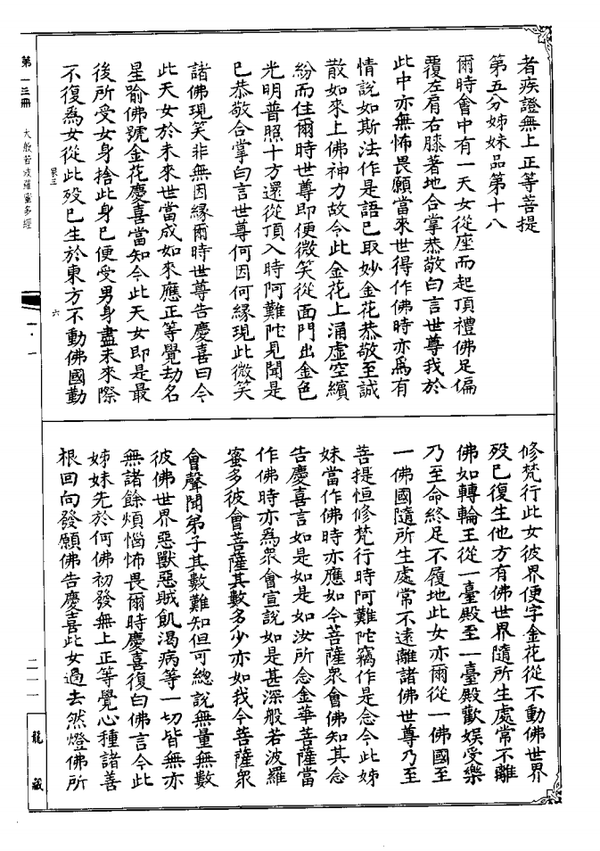 者疾證無上正等菩提
第五分姊妹品第十八
爾時會中有一天女從座而起頂禮佛足偏
覆左肩右膝著地合掌恭敬白言世尊我於
此中亦無怖畏願當來世得作佛時亦爲有
情說如斯法作是語已取妙金花恭敬至誠
散如來上佛神力故令此金花上涌虛空繽
紛而住爾時世尊即便微笑從面門出金色
光明普照十方還從頂入時阿難陀見聞是
已恭敬合掌白言世尊何因何緣現此微笑
諸佛現笑非無因緣爾時世尊告慶喜曰今
此天女於未來世當成如來應正等覺劫名
星喻佛號金花慶喜當知今此天女即是最
後所受女身捨此身已便受男身盡未來際
不復爲女從此歿已生於東方不動佛國勤
修梵行此女彼界便字金花從不動佛世界
歿已復生他方有佛世界隨所生處常不離
佛如轉輪王從一臺殿至一臺殿歡娛受樂
乃至命終足不履地此女亦爾從一佛國至
一佛國隨所生處常不遠離諸佛世尊乃至
菩提恒修梵行時阿難陀竊作是念今此姊
妹當作佛時亦應如今菩薩衆會佛知其念
告慶喜言如是如是如汝所念金華菩薩當
作佛時亦爲衆會宣說如是甚深般若波羅
蜜多彼會菩薩其數多少亦如我今菩薩衆
會聲聞弟子其數難知但可總說無量無數
彼佛世界惡獸惡賊飢渴病等一切皆無亦
無諸餘煩惱怖畏爾時慶喜復白佛言今此
姊妹先於何佛初發無上正等覺心種諸善
根回向發願佛告慶喜此女過去然燈佛所
第一三冊 大般若波羅蜜多經
六
一·一
二一一
龍藏